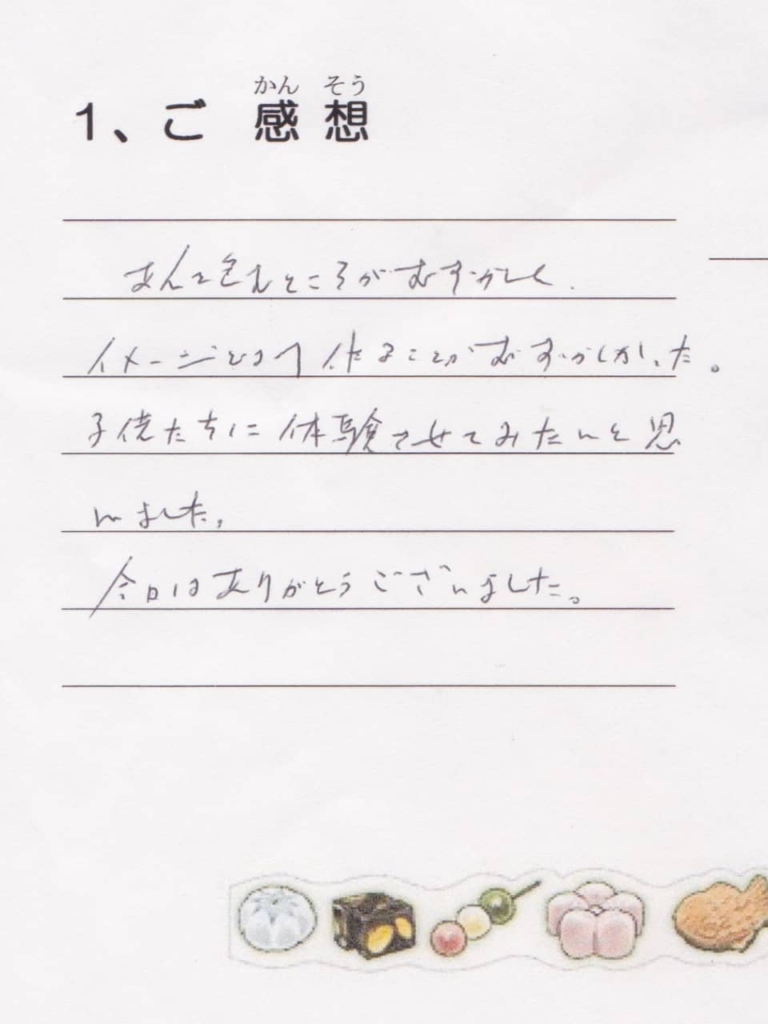 かん そう
1、ご 感 想
あんを包むところがむずかしく、
イメージどおり作ることがむずかしかった。
子供たちに体験させてみたいと思
いました。
今日はありがとうございました。